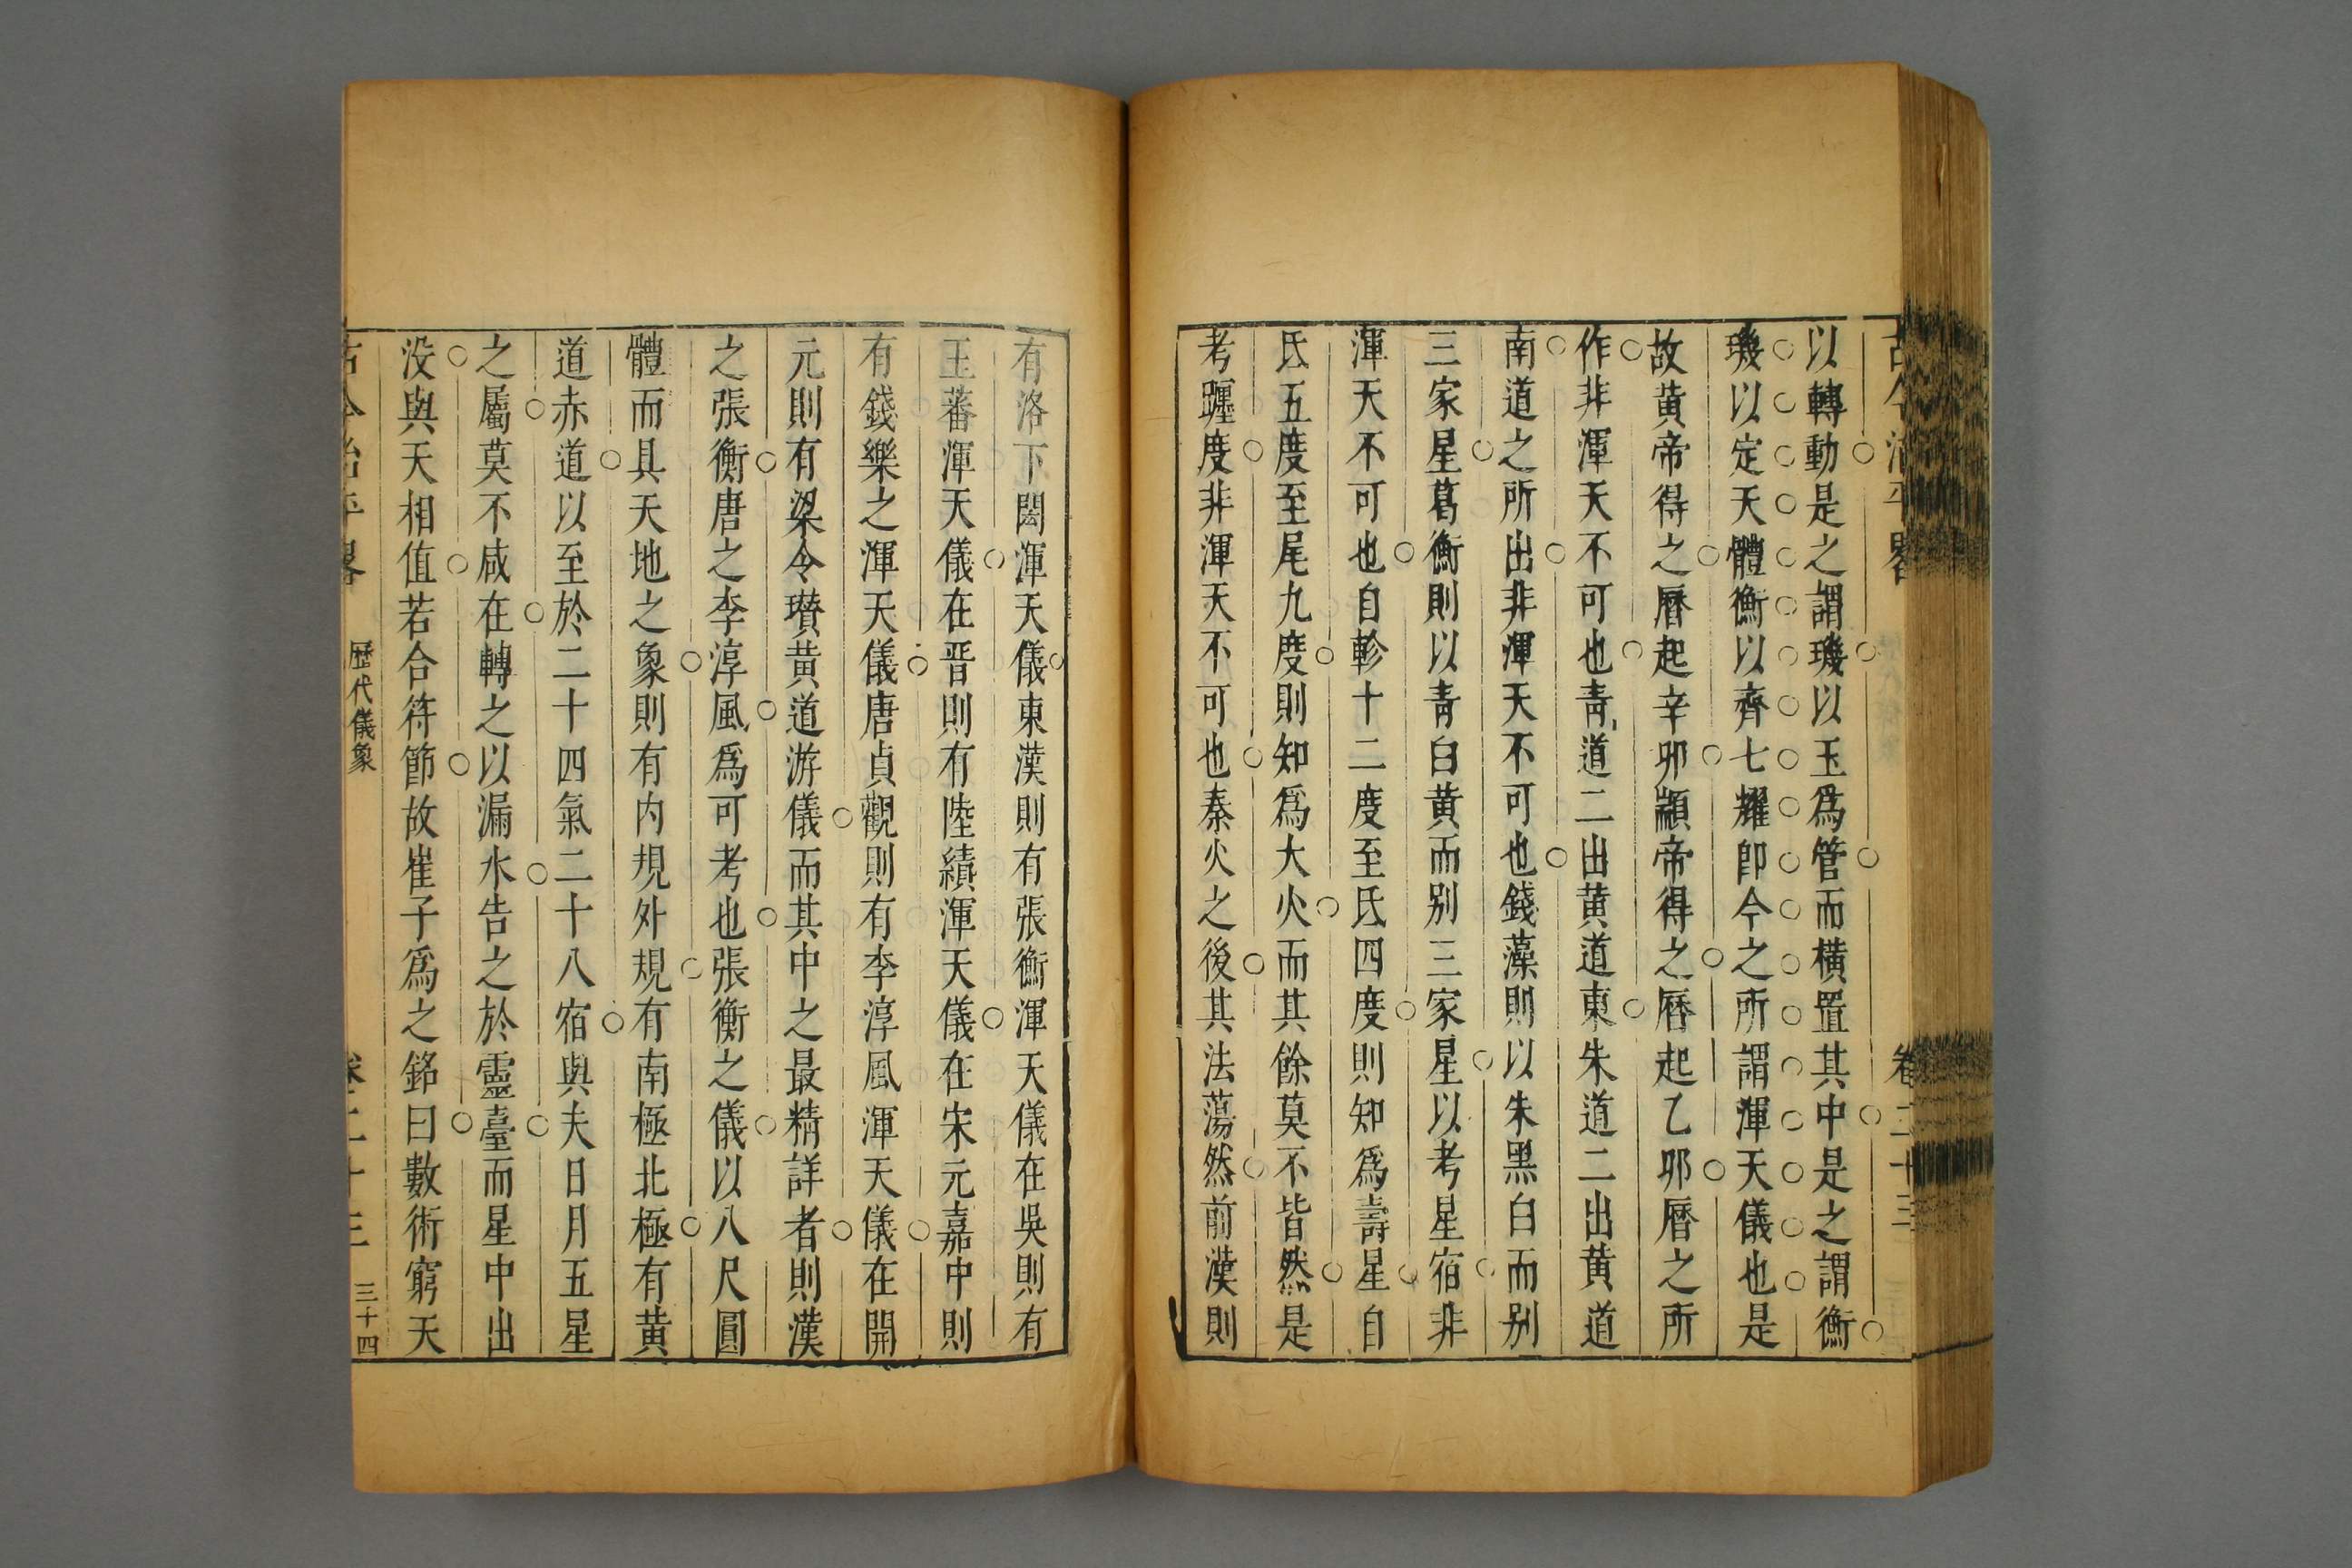 古今治平畧 卷二十三
以轉動是之謂璣以玉爲管而橫置其中是之謂衡
璣以定天體衡以齊七耀卽今之所謂渾天儀也是
故黃帝得之曆起辛卯顓帝得之曆起乙卯曆之所
作非渾天不可也靑道二出黃道東朱道二出黃道
南道之所出非渾天不可也錢藻則以朱黑白而别
三家星葛衡則以靑白黃而别三家星以考星宿非
渾天不可也自軫十二度至氐四度則知爲壽星自
氐五度至尾九度則知爲大火而其餘莫不皆然是
考躔度非渾天不可也秦火之後其法蕩然前漢則
有洛下閎渾天儀東漢則有張衡渾天儀在吳則有
王蕃渾天儀在晋則有陸績渾天儀在宋元嘉中則
有錢樂之渾天儀唐貞觀則有李淳風渾天儀在開
元則有梁令瓚黃道游儀而其中之最精詳者則漢
之張衡唐之李淳風爲可考也張衡之儀以八尺圓
體而具天地之象則有内規外規有南極北極有黃
道赤道以至於二十四氣二十八宿與夫日月五星
之屬莫不咸在轉之以漏水告之於靈臺而星中出
没與天相值若合符節故崔子爲之銘曰數術窮天
古今治平畧 歷代儀象 卷二十三 三十四